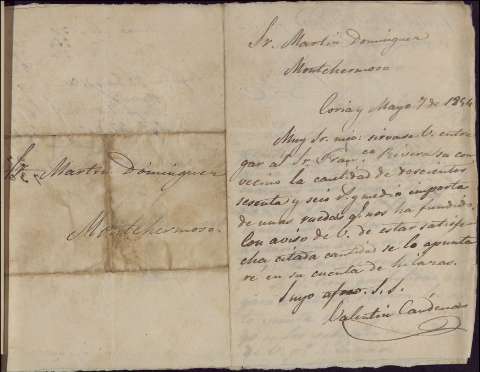 Sr. Martin Dominguez
Montehermoso
Sr. Martin Dominguez
Montehermoso.
Coria y Mayo 7 de 1854
Muy Sr. mio: sirvase V. entre
gar al Sr. Fran.co Rivera su con
vecino la cantidad de doscientos
sesenta y seis r. y medio importe
de unas ruedas q. nos ha fundido.
Con aviso de V. de estar satisfe
cha citada cantidad se lo apunta
ré en su cuenta de hilazas.
Suyo afmo. S. S.
Valentin Cardenas